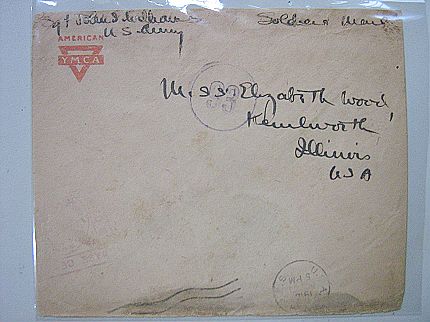 Sgt John S Williams
U S Army
Soldiers Mail
AMERICAN
YMCA
Miss Elizabeth Wood
Kenilworth
Illinois
USA